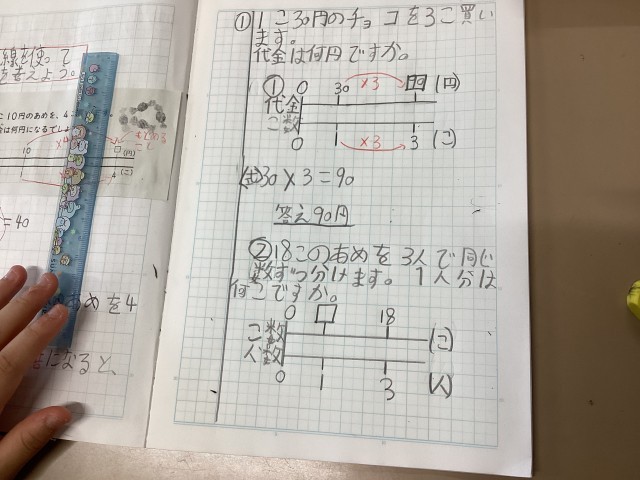 線を使って
を考えよう。
こ10円のあめを、4こ
10
□(円)
4
(こ)
=40
あめを4
になると、
① 1こ30円のチョコを3こ買い
ます。
代金は何円ですか。
① 0 30 ×3 □ (円)
代金
こ数
0 1 ×3 3 (こ)
(式)30×3=90
答え90円
②18このあめを3人で同じ
数ずつ分けます。1人分は
何こですか。
0 □ 18
こ数 (こ)
人数
0 1 3 (人)